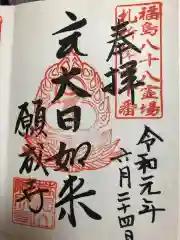 福島八十八霊場
奉拝
大日如来
願成寺
令和元年
六月二十四日